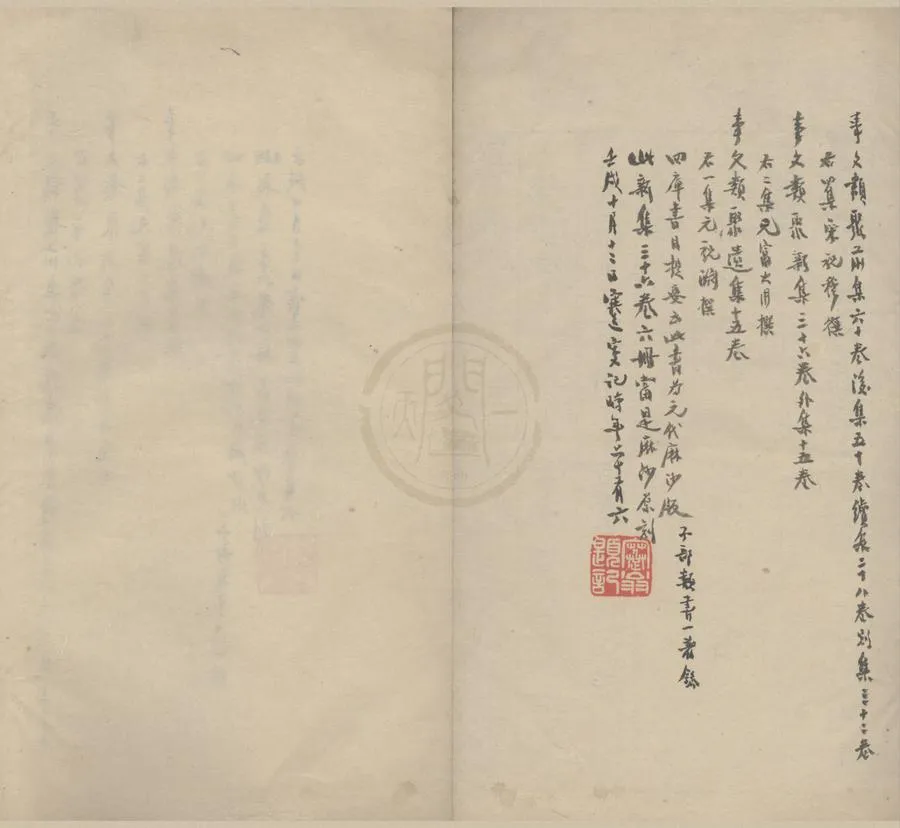 事文類聚前集六十卷後集五十卷續集二十八卷別集三十二卷
右四集宋祝穆撰
事文類聚新集三十六卷外集十五卷
右二集元富大用撰
事文類聚遺集十五卷
右一集元祝淵撰
四庫書目提要云此書為元代麻沙版
子部類書一著錄
此新集三十六卷六冊當是麻沙原刻
壬戌十月十三日叟記時年六十有六